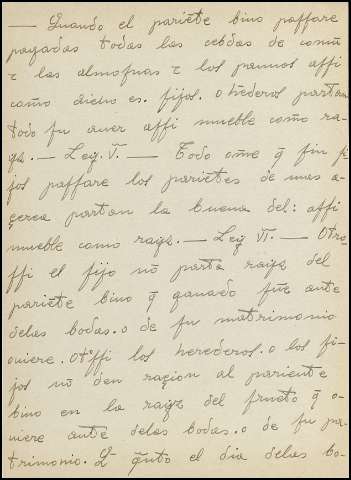 — Quando el pariẽte bino paſſare
pagadas todas las cebdas de comũ
⁊ las almoſnas ⁊ los pannos aſſi
como dicho es. fijos. o hẽderos partan
todo ſu auer aſſi mueble como ra-
yz. — Ley. V. — Todo ome q̃ ſin fi
jos paſſare los pariẽtes de mas a-
çerca partan la buena del: aſſi
mueble como rayz. — Ley VI. — Otro
ſſi el fijo nõ parta rayz del
pariẽte bino q̃ ganado fue ante
delas bodas. o de ſu matrimonio
ouiere. Otºſſi los herederos. o los fi-
jos nõ den raçion al pariente
bino en la rayz del fructo q̃ o-
uiere ante delas bodas. o de ſu pa-
trimonio. q̃nto el dia delas bo-